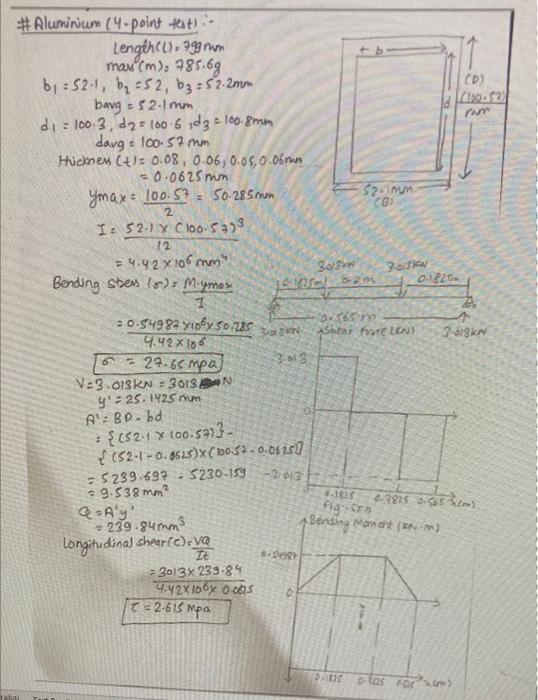 # Aluminium (4-point test) :-
Length(L) = 799 mm
mass(m) = 785.6g
b1 = 52.1, b2 = 52, b3 = 52.2mm
bavg = 52.1mm
d1 = 100.3, d2 = 100.6, d3 = 100.8mm
davg = 100.57 mm
thickness (t) = 0.08, 0.06, 0.05, 0.06mm
= 0.0625mm
ymax = 100.57 / 2 = 50.285mm
I = 52.1 x (100.57)³ / 12
= 4.42 x 10⁶ mm⁴
Bending stress (σ) = M.ymax / I
= 0.54987 x 10⁶ x 50.285 / 4.42 x 10⁶
σ = 27.65 mpa
V = 3.013kN = 3013 N
y' = 25.1425 mm
A' = BD - bd
= {(52.1 x 100.57)} -
{(52.1 - 0.0625) x (100.57 - 0.0625)}
= 5239.697 - 5230.159
= 9.538 mm²
Q = A'y'
= 239.84mm³
Longitudinal shear (τ) = VQ / It
= 3013 x 239.84 / 4.42 x 10⁶ x 0.0625
τ = 2.615 mpa
b
d
(D)
(100.57)
mm
52.1mm
(B)
3.013kN 3.013kN
0.1825m 0.2m 0.1825m
0.565m
3.013kN 3.013kN
Shear force (kN)
3.013
0
0.1825 0.3825 0.565 x(m)
fig - SFD
Bending Moment (kN.m)
0
0.1825 0.3825 x(m)